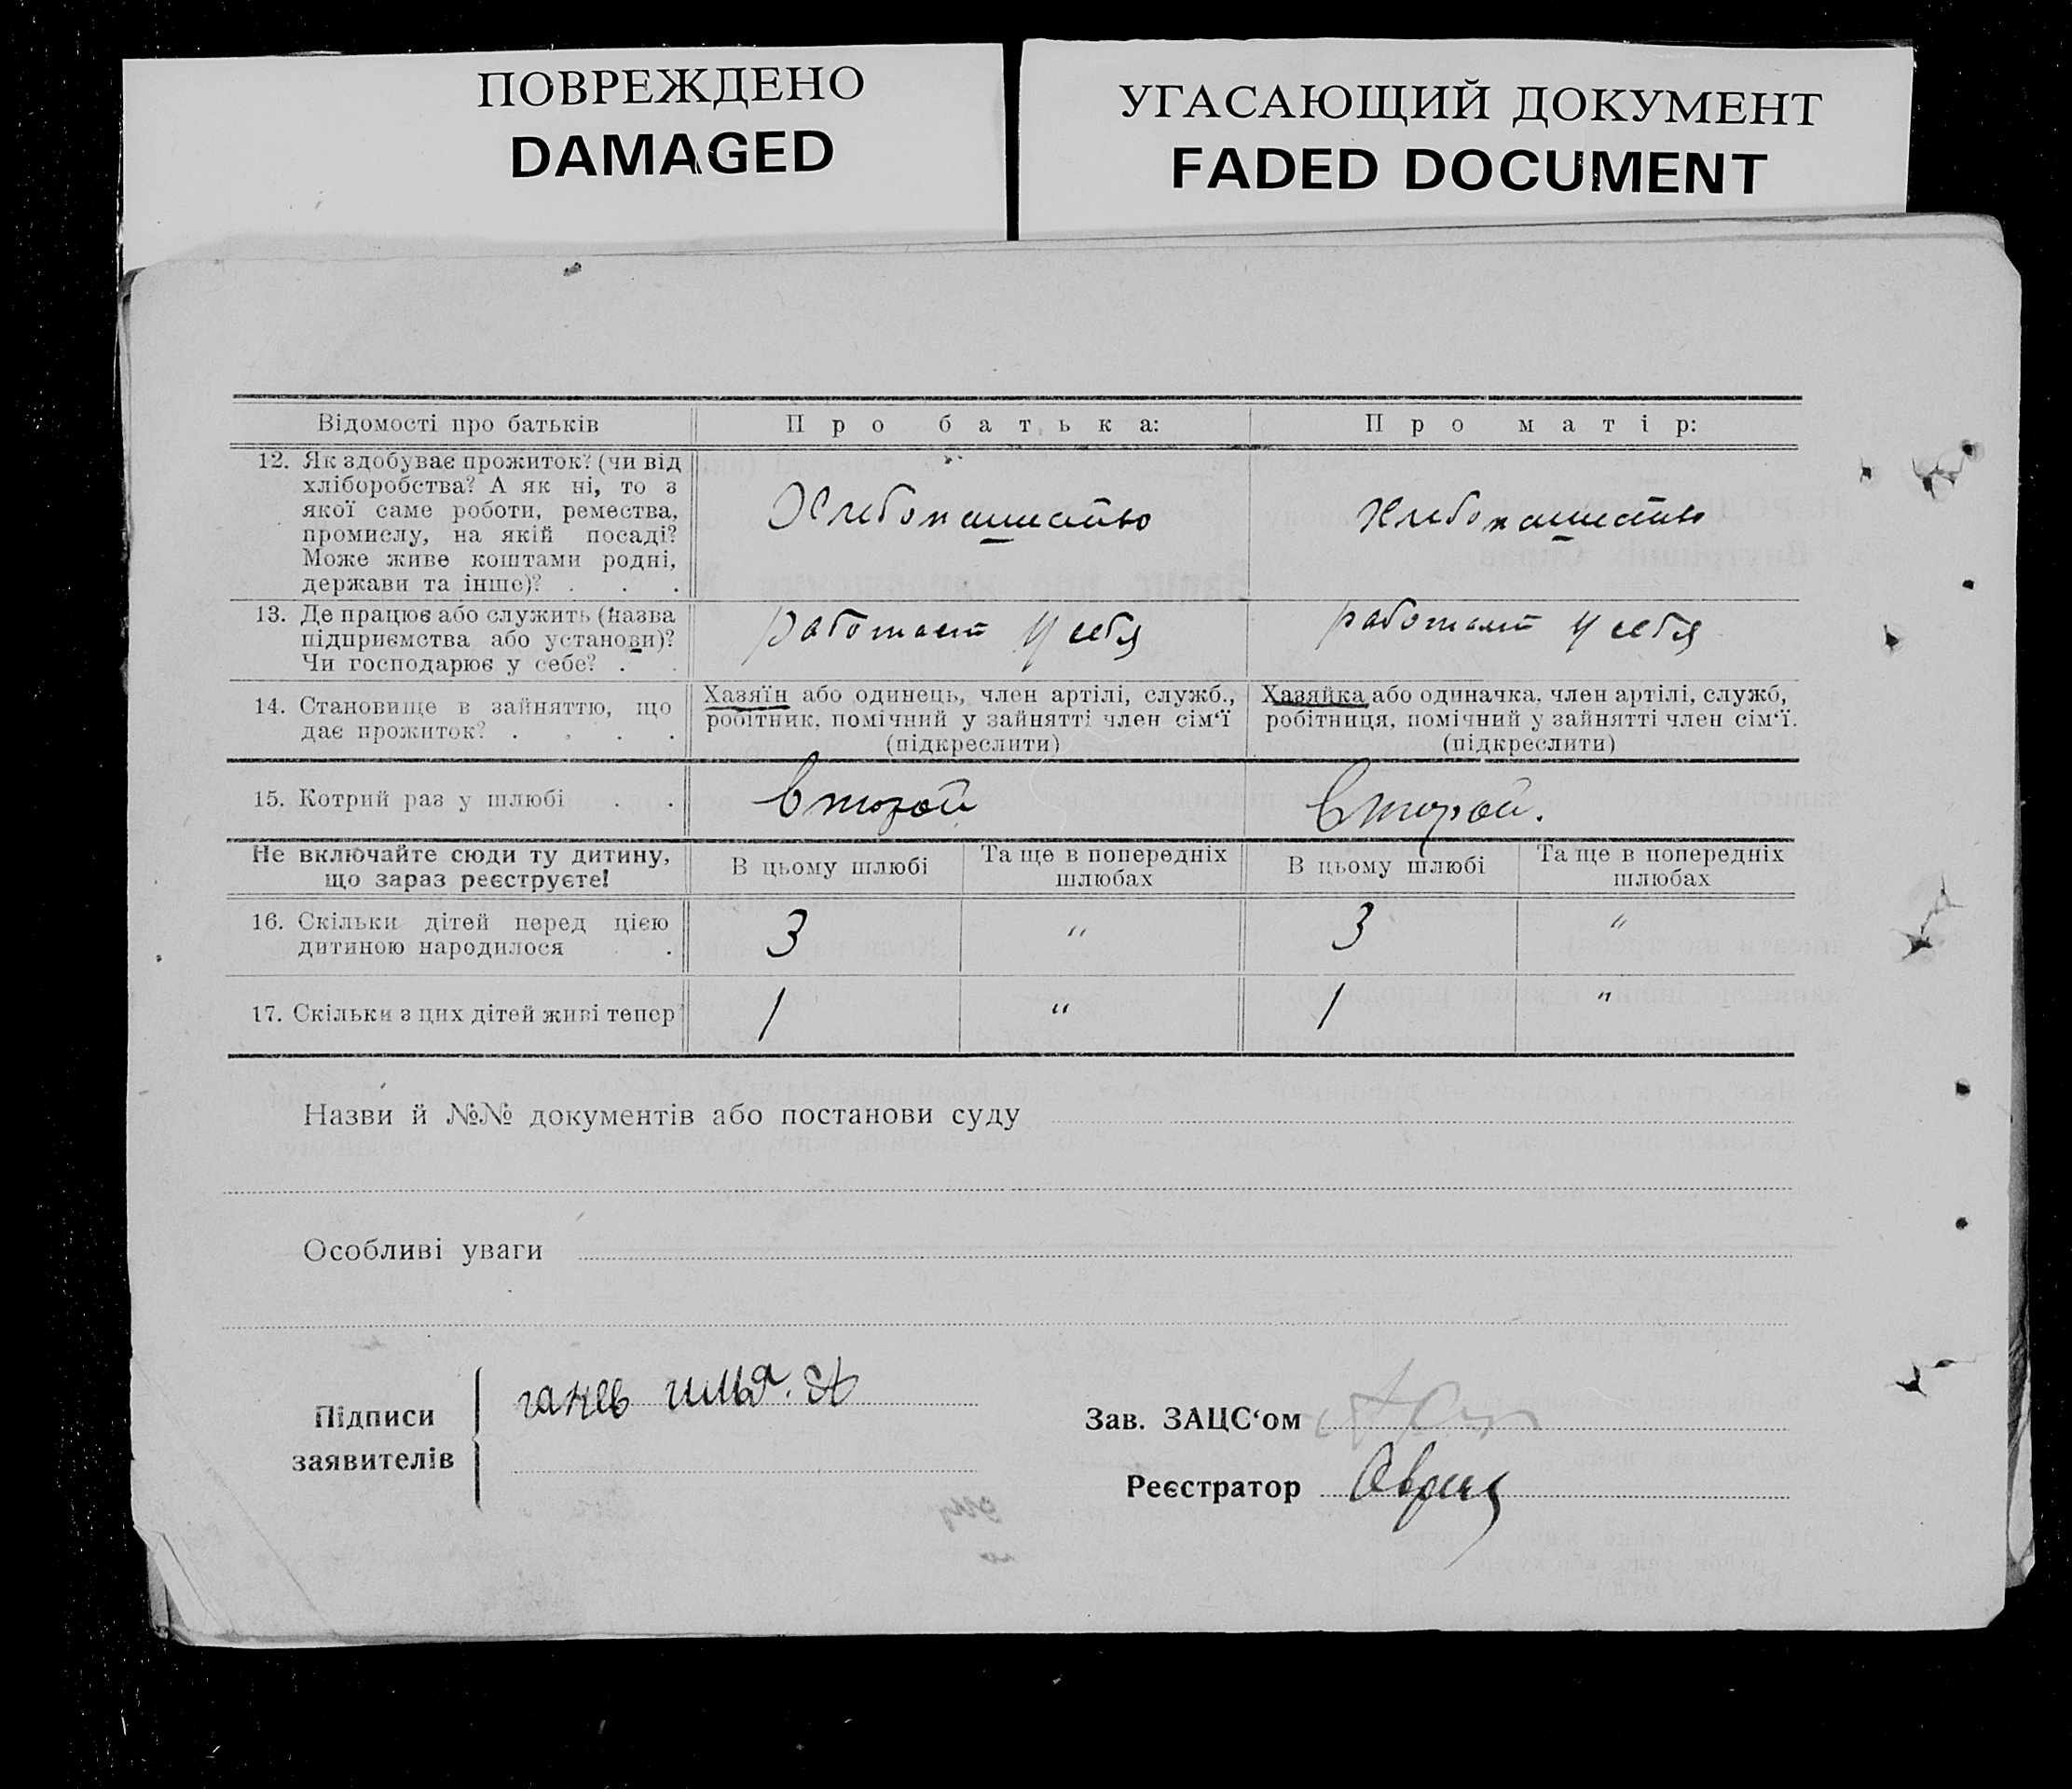 ПОВРЕЖДЕНО
DAMAGED
УГАСАЮЩИЙ ДОКУМЕНТ
FADED DOCUMENT
Відомості про батьків
Про батька:
Про матір:
12. Як здобуває прожиток? (чи від
хліборобства? А як ні, то з
якої саме роботи, ремества,
промислу, на якій посаді?
Може живе коштами родні,
держави та інше)? . . .
Хлебопашество
Хлебопашество
13. Де працює або служить (назва
підприємства або установи)?
Чи господарює у себе? . .
работает у себя
работает у себя
14. Становище в зайняттю, що
дає прожиток? . . . .
Хазяїн або одинець, член артілі, служб.,
робітник, помічний у зайнятті член сім‘ї
(підкреслити)
Хазяйка або одиначка, член артілі, служб,
робітниця, помічний у зайнятті член сім‘ї.
(підкреслити)
15. Котрий раз у шлюбі . .
Второй
Второй.
Не включайте сюди ту дитину,
що зараз реєструєте!
В цьому шлюбі
Та ще в попередніх
шлюбах
В цьому шлюбі
Та ще в попередніх
шлюбах
16. Скільки дітей перед цією
дитиною народилося .
3
"
3
"
17. Скільки з цих дітей живі тепер
1
"
1
"
Назви й №№ документів або постанови суду
Особливі уваги
Підписи
заявителів
ганев илья. А
Зав. ЗАЦС‘ом
Реєстратор